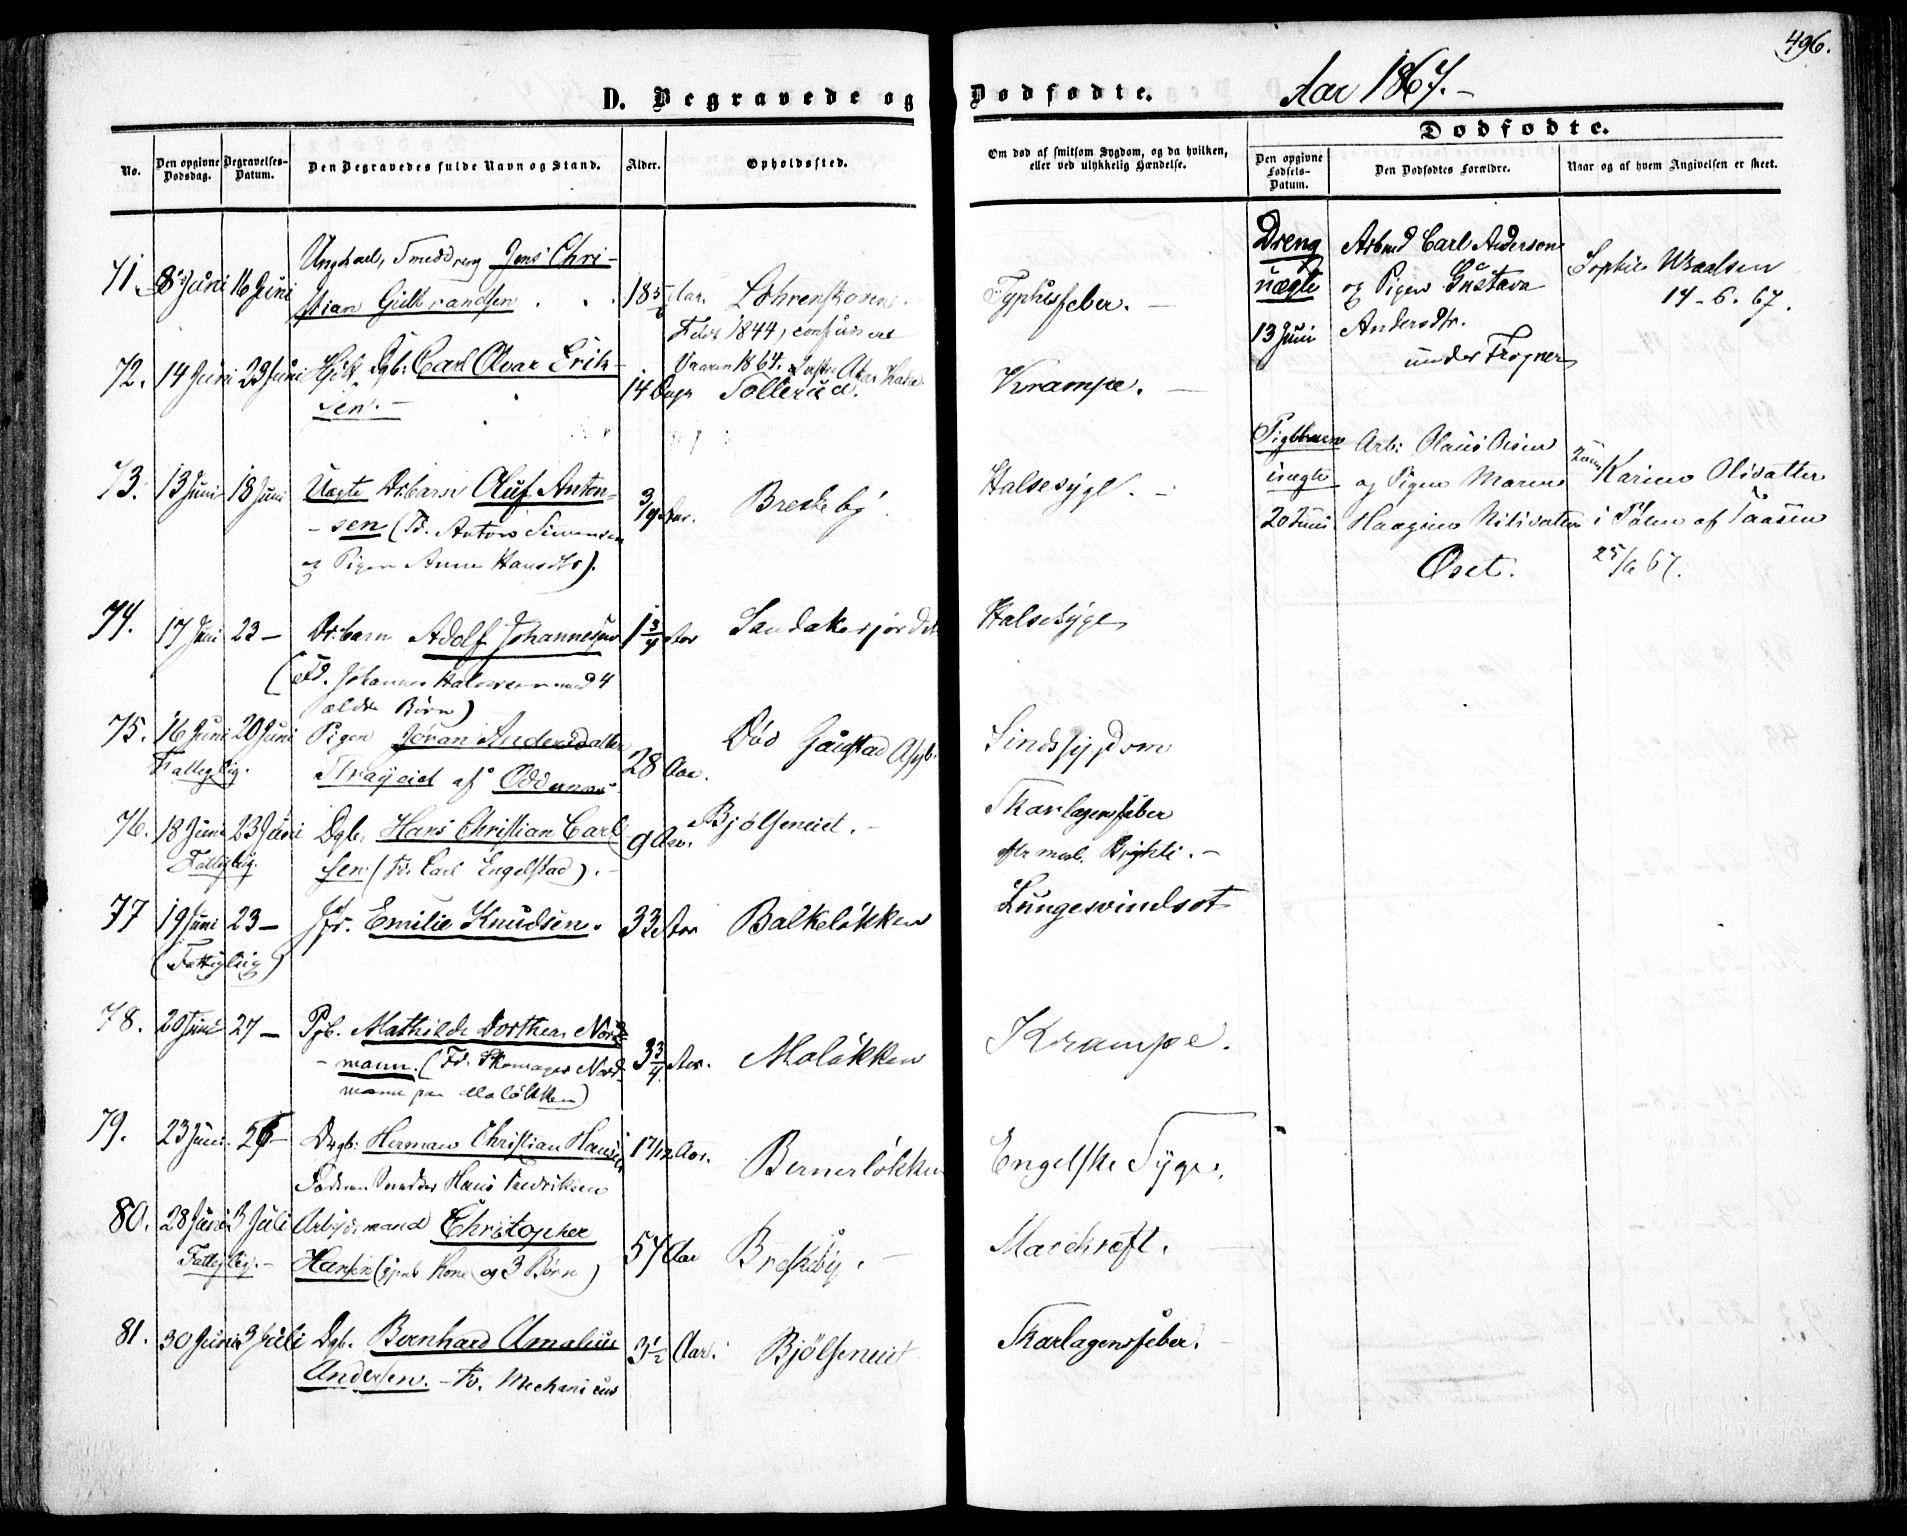 496.
D. Begravede og Dødfødte.
Aar 1867.-
Dødfødte.
No.
Den opgivne Dødsdag.
Begravelses-Datum.
Den Begravedes fulde Navn og Stand.
Alder.
Opholdssted.
Om død af smitsom Sygdom, og da hvilken, eller ved ulykkelig Hændelse.
Den opgivne Fødsels-Datum.
Den Dødfødtes Forældre.
Naar og af hvem Angivelsen er skeet.
71. 8 Juni 16 Juni Ungkarl, Smeddreng Jens Chri-
stian Gulbrandsen 18 Aar. Typhusfeber. -
Født 1844, confirmeret
Vaaren 1864.
72. 14 Juni 23 Juni Dgb: Carl Olvar Erik-
sen. - 14 Dage Sollerud. Krampe. -
73. 13 Juni 18 Juni Uægte Drbarn Oluf Anton-
- sen (Fd. Anton Simensen
og Pigen Anne Hansdtr). 3/4 Aar. Breskeby Halsesyge. -
74. 17 Juni 23 - Drbarn Adolf Johannesen 1 3/4 Aar Sandakerjordet Halsesyge
(Fd. Johannes Halvorsen med 4
ældre Børn)
75. 16 Juni 20 Juni Pigen Jøran Andersdatter
Fattiglig. Strayeiet af Oddernes 28 Aar. Død Gaustad Asyl. Sindssygdom
76. 18 Juni 23 Juni Dgb. Hans Christian Carl-
Fattiglig. sen (Fd. Carl Engelstad). - 9 Aar. Bjølseneiet. - Skarlagensfeber
Mr morb. Brighti. -
77 19 Juni 23 - Jfr. Emilie Knudsen. 33 Aar Balkeløkken Lungesvindsot
(Fattiglig)
78. 20 Juni 27 - Pgb. Mathilde Dorthea Nord-
- mann. (Fd. Skomager Nord-
mann paa Moløkken) 3 3/4 Aar. Moløkken Krampe.
79. 23 Juni 26 - Drgb: Herman Christian Hansen 1 7/12 Aar. Bernerløkken Engelske Syge.
Faderen Smed Hans Fredriksen
80. 28 Juni 3 Juli Arbeidsmand Christopher
Fattiglig. - Hansen (gjenl. Kone og 3 Børn) 57 Aar Breskeby. - Mavekræft.
81. 30 Juni 3 Juli Dgb. Bernhard Amalius
Andersen. - Fd. Mechanicus 3 1/2 Aar. Bjølseneiet Skarlagensfeber. -
Dreng
uægte
13 Juni
Arbmd Carl Anderson
og Pigen Gustava
Andersdtr.
under Frogner
Sophie
14-6.67.
Pigebarn
uægte
20 Juni.
Arb: Olaus Olsen
og Pigen Maren
Øset.
Karine Olsdatter
25/6 67.